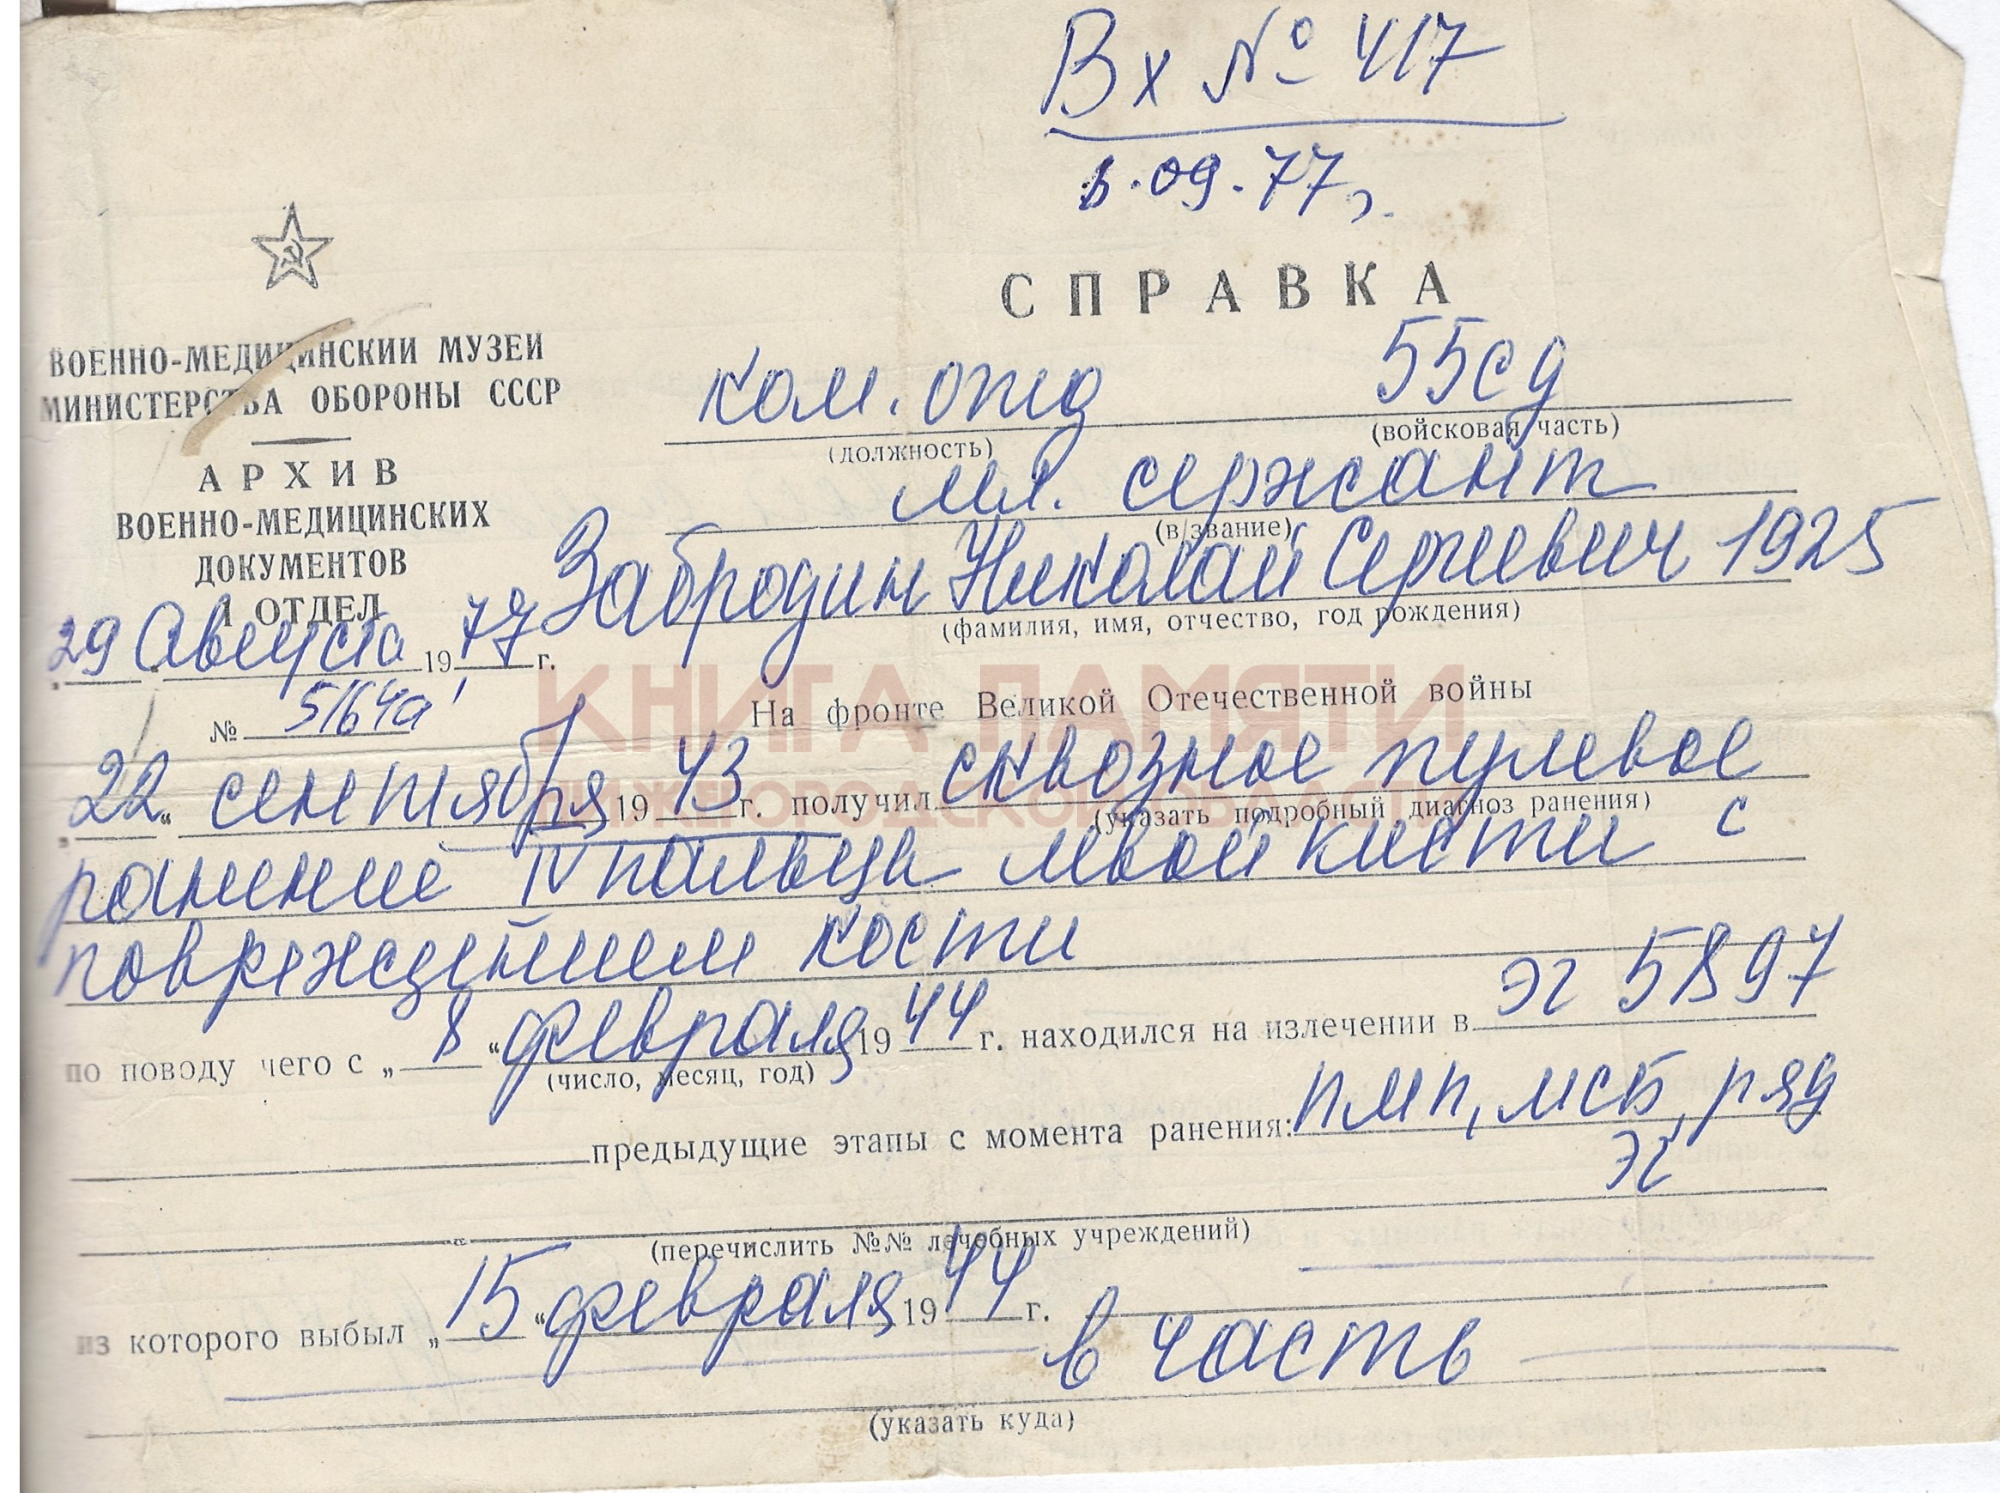 Вх № 417
6.09.77г.
СПРАВКА
ВОЕННО-МЕДИЦИНСКИЙ МУЗЕЙ
МИНИСТЕРСТВА ОБОРОНЫ СССР
АРХИВ
ВОЕННО-МЕДИЦИНСКИХ
ДОКУМЕНТОВ
1 ОТДЕЛ
„29 Августа 1977 г.
№ 5164а
ком. отд 55сд
(должность) (войсковая часть)
мл. сержант
(в/звание)
Забродин Николай Сергеевич 1925
(фамилия, имя, отчество, год рождения)
КНИГА ПАМЯТИ
НИЖЕГОРОДСКОЙ ОБЛАСТИ
На фронте Великой Отечественной войны
„22“ сентября 1943 г. получил сквозное пулевое
(указать подробный диагноз ранения)
ранение IV пальца левой кисти с
повреждением кости
по поводу чего с „8“ февраля 1944 г. находился на излечении в ЭГ 5897
(число, месяц, год)
предыдущие этапы с момента ранения: ПМП, МСБ, ряд
ЭГ
(перечислить №№ лечебных учреждений)
из которого выбыл „15“ февраля 1944 г.
в часть
(указать куда)